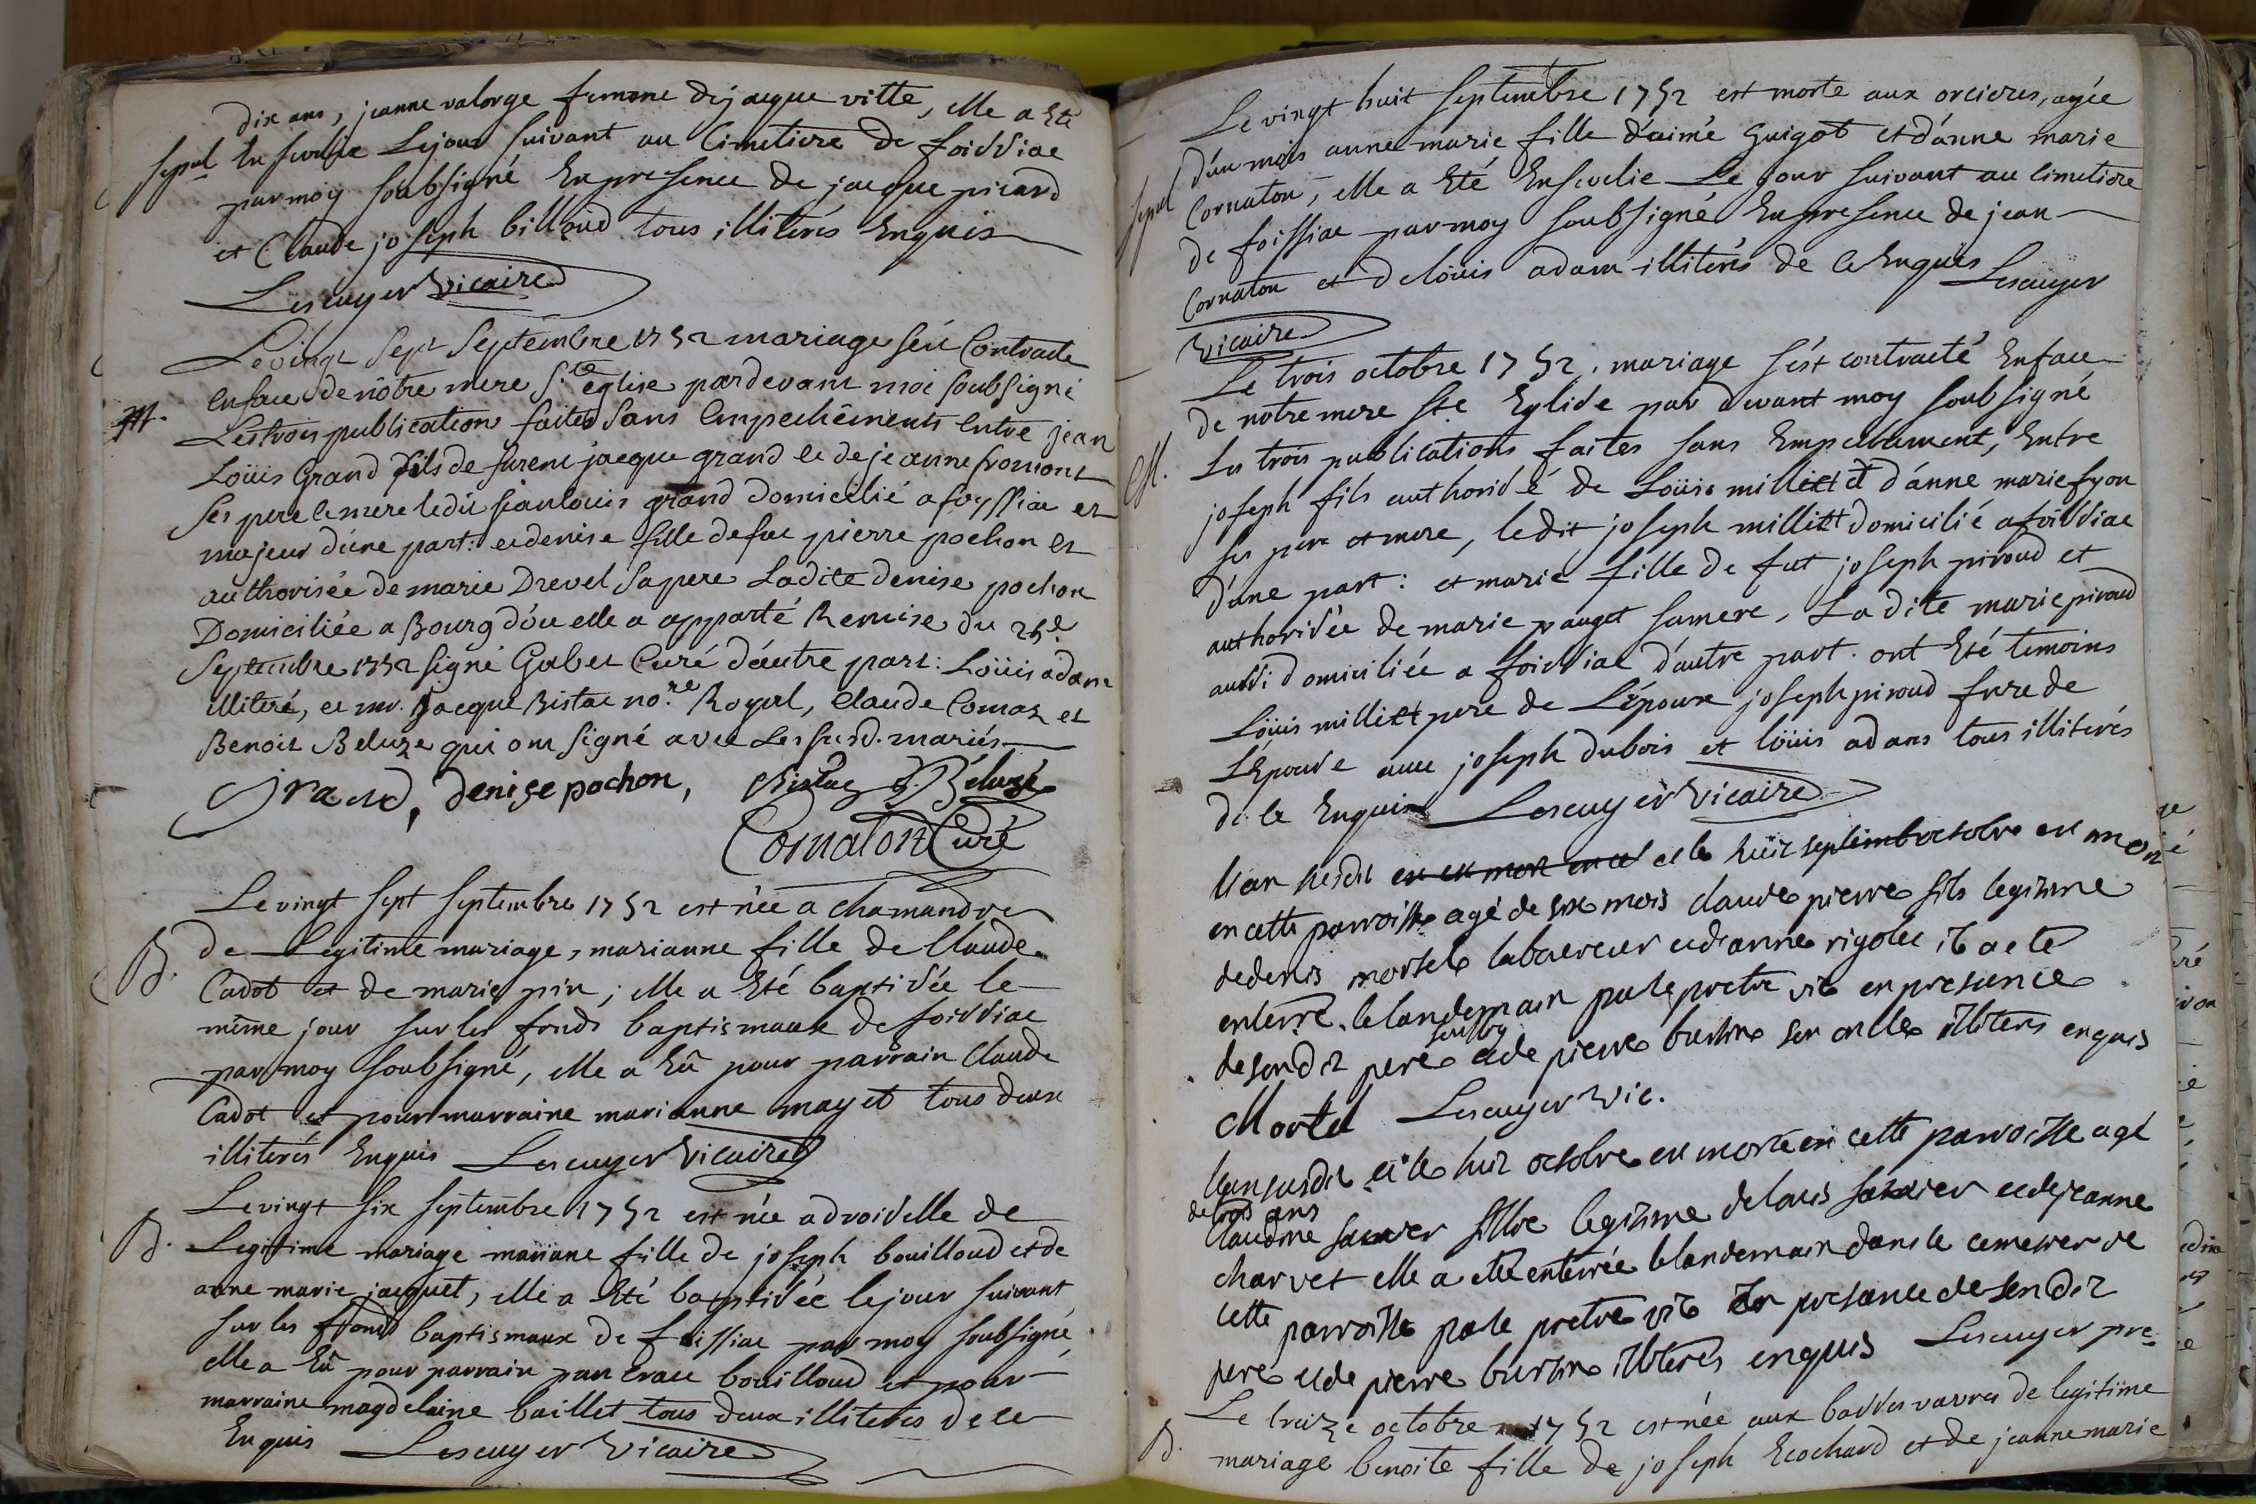 dix ans, jeanne valorge femme dejacque vitte, elle a Eté
sepul Ensevelie Lejour suivant au Cimetiere de foissiac
par moy soubsigné En presence de jacque picard
et Claude joseph billoud tous illiterés Enquis
Lescuyer vicaire
Le vingt sept Septembre 1752 mariage s'éït Contracte
En face de nôtre mere S.te église pardevant moi soubsigné
M. Les trois publication faites sans Empechêments Entre jean
Loüis Grand fils de furent jacque grand et de jeanne fromont
ses pere et mere ledit jeanlouis grand domicilié a foyssiac et
majeur d'une part: et denise fille de feu pierre pochon et
authorisée de marie Drevel sa mere Ladite denise pochon
Domiciliée a Bourg d'óu elle a apporté Remise du 25.e
Septembre 1752 signé Gabet Curé d'autre part: Loüis adam
illiteré, et mr. jacque Bistac no.re Royal, Claude Comas et
Benoit Beluze qui ont signé avec Les susd. mariés
Grand, denise pochon, Bistac B. Béluze
Cornaton Curé
Le vingt sept septembre 1752 est née a chamandre
de Legitime mariage, marianne fille de Claude
B. Cadot et de marie pin; elle a Eté baptisée le
même jour sur les fonds baptismaux de foissiac
par moy soubsigné, elle a Eû pour parrain Claude
Cadot et pour marraine marianne mayet tous deux
illiterés Enquis Lescuyer Vicaire
Le vingt six septembre 1752 est née a droiselle de
B. Legitime mariage mariane fille de joseph bouilloud et de
anne marie jacquet, elle a Eté baptisée le jour suivant
sur les fonds baptismaux de foissiac par moy soubsigné,
elle a Eû pour parrain pancrace bouilloud et pour
marraine magdelaine baillet tous deux illiterés de ce
Enquis Lescuyer Vicaire
Le vingt huit septembre 1752 est morte aux orcieres, agée
d'un mois anne marie fille d'aimé Guigot et d'anne marie
sepul Cornaton, elle a Eté Ensevelie Le jour suivant au Cimetiere
de foissiac par moy soubsigné En presence de jean
Cornaton et de loüis adam illiterés de ce Enquis Lescuyer
Vicaire
Le trois octobre 1752, mariage s'ést contracté En face
de notre mere ste Eglise par devant moy soubsigné
M. Les trois publications faites sans Empechement, Entre
joseph fils authorisé de Loüis millitt et d'ánne marie fyon
ses pere et mere, ledit joseph millitt domicilié a foissiac
d'une part: et marie fille de fut joseph piroud et
authorisée de marie pauget sa mere, Ladite marie piroud
aussi domiciliée a foissiac d'autre part. ont Eté temoins
Loüis millitt pere de L'époux joseph piroud frere de
L'Epouse avec joseph dubois et loüis adam tous illiterés
de ce Enquis Lescuyer Vicaire
l'an susdit et le huit octobre est mort
en cette parroisse agé de six mois claude pierre fils legitime
de denis mortel laboureur et d'anne rigolet il a ete
enterré le landemain par le pretre vic en presence
de son dit pere soussig et de pierre burtin son oncle illiteres enquis
Mortel Lescuyer vic.
l'an susdit et le huit octobre est morte en cette parroisse agé
de trois ans
claudine sauver fille legitime de louis et de jeanne
charvet elle a ete enterrée le landemain dans le cemetier de
cette parroisse par le pretre vic En presance de son dit
pere et de pierre burtin illiterés enquis Lescuyer pre
Le treize octobre 1752 est née aux basses vavres de legitime
B. mariage benoite fille de joseph Ecochard et de jeanne marie